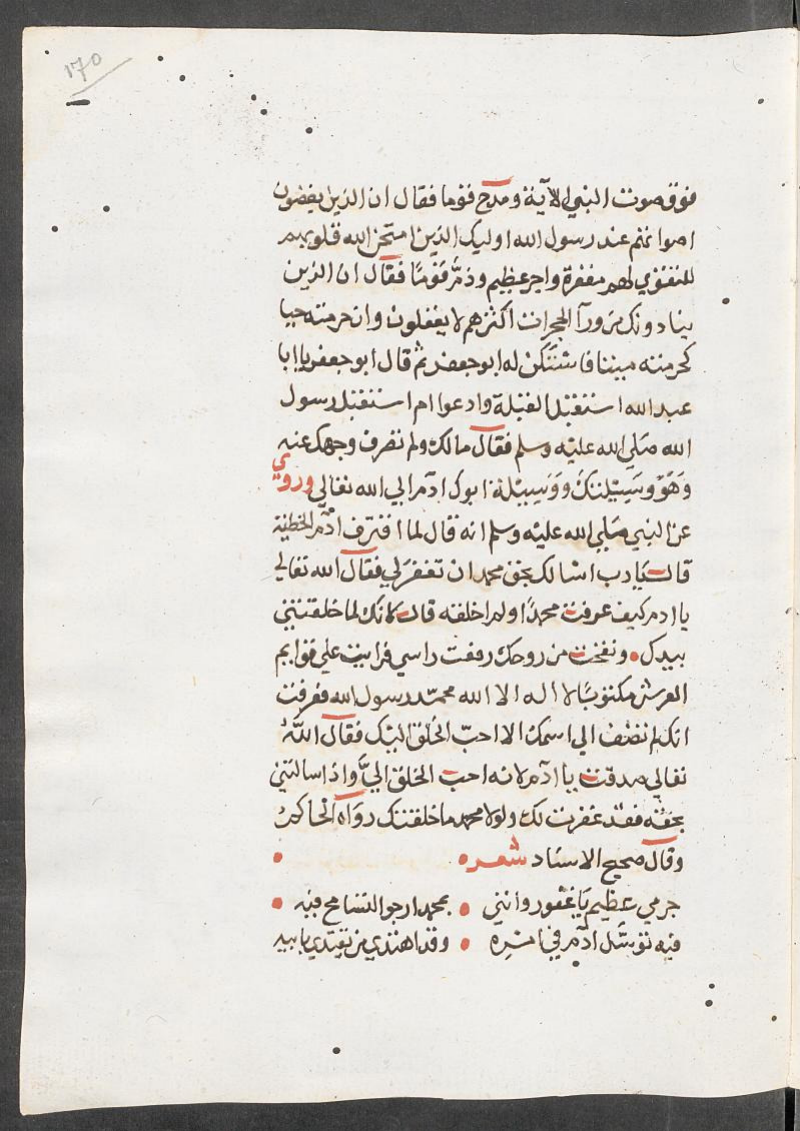 ١٧٥
فوق صوت النبي الاية ومدح قوما فقال ان الذين يغضون
اصواتهم عند رسول الله اوليك الذين امتحن الله قلوبهم
للتقوي لهم مغفرة واجر عظيم وذمّ قومًا فقال ان الذين
ينادونك من ورآ الحجرات اكثرهم لا يعقلون وان حرمته حيا
كحرمته ميتا فاستكن له ابو جعفر ثم قال ابو جعفر يا ابا
عبد الله استقبل القبلة وادعوا ام استقبل رسول
الله صلي الله عليه وسلم فقال مالك ولم تصرف وجهك عنه
وهو وسيلتك ووسيلة ابوك ادم الي الله تعالي وروي
عن النبي صلي الله عليه وسلم انه قال لما اقترف ادم الخطيئة
قال يا رب اسالك بحق محمد ان تغفر لي فقال الله تعالي
يا ادم كيف عرفت محمدًا ولم اخلقه قال لانك لما خلقتني
بيدك • ونفخت من روحك رفعت راسي فرايت علي قوايم
العرش مكتوبًا لا اله الا الله محمد رسول الله فعرفت
انك لم تضف الي اسمك الا احبّ الخلق اليك فقال الله
تعالي صدقت يا ادم لانه احب الخلق اليّ واذا سالتني
بحقه فقد غفرت لك ولولا محمد ما خلقتك رواه الحاكم
وقال صحيح الاسناد شعر • •
جرمي عظيم يا غفور وانني • بمحمد ارجو التسامح فيه •
فبه توسّل ادم في امره • وقد اهتدي من يقتدي بابيه